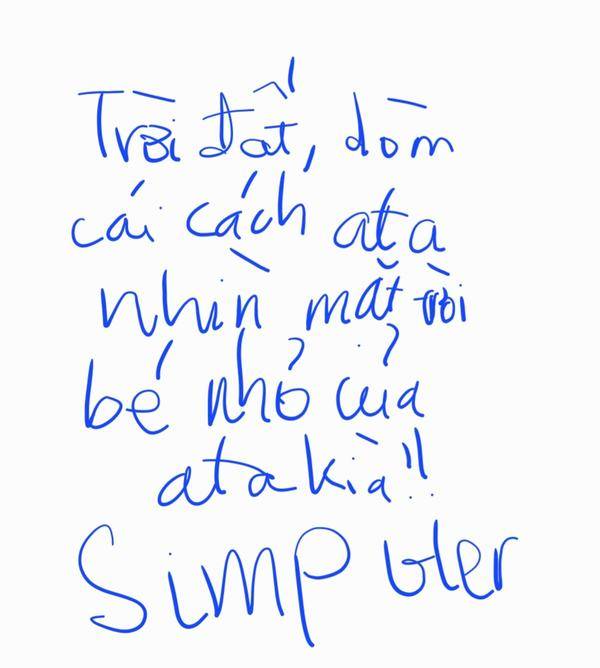 Trời đất, dòm
cái cách ata
nhìn mặt trời
bé nhỏ của
ata kìa!!
Simp